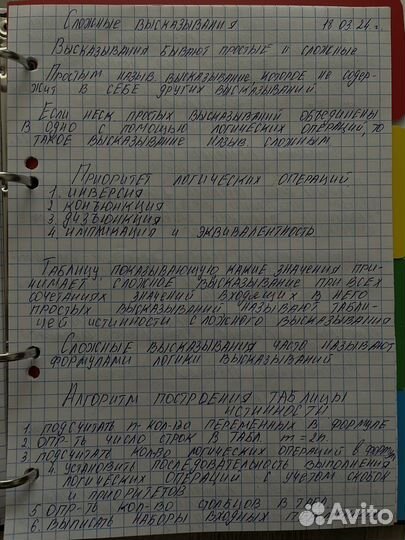 Сложные высказывания 18.03.24г.
Высказывания бывают простые и сложные
Простым назыв. высказывание, которое не содер-
жит в себе других высказываний.
Если неск. простых высказываний объединены
в одно с помощью логических операций, то
такое высказывание назыв. сложным
Приоритет логических операций
1. инверсия
2. конъюнкция
3. дизъюнкция
4. импликация и эквивалентность
Таблицу, показывающую какие значения при-
нимает сложное высказывание при всех
сочетаниях значений входящих в него
простых высказываний называют табли-
цей истинности сложного высказывания
Сложные высказывания часто называют
формулами логики высказываний
Алгоритм построения таблицы
истинности
1. подсчитать n-кол-во переменных в формуле
2. опр-ть число строк в табл. m=2n.
3. подсчитать кол-во логических операций в
4. установить последовательность выполнения
логических операций с учетом скобок
и приоритетов
5 опр-ть кол-во столбцов в табл.
6. выписать наборы входных
Avito